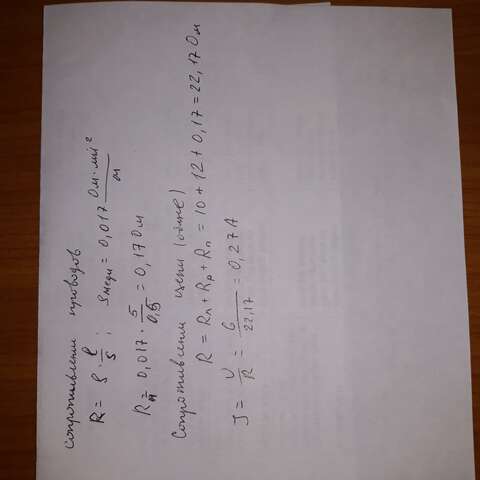 Сопротивление проводов
R = ρ · l/S ; ρмеди = 0,017 Ом·мм²/м
Rп = 0,017 · 5/0,5 = 0,17 Ом
Сопротивление цепи (общее)
R = Rл + Rр + Rп = 10 + 12 + 0,17 = 22,17 Ом
J = U/R = 6/22,17 = 0,27 А